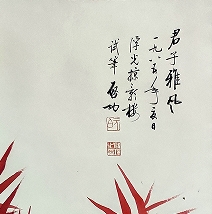 君子雅风
一九八五年夏日
浮光掠影楼
试笔 启功